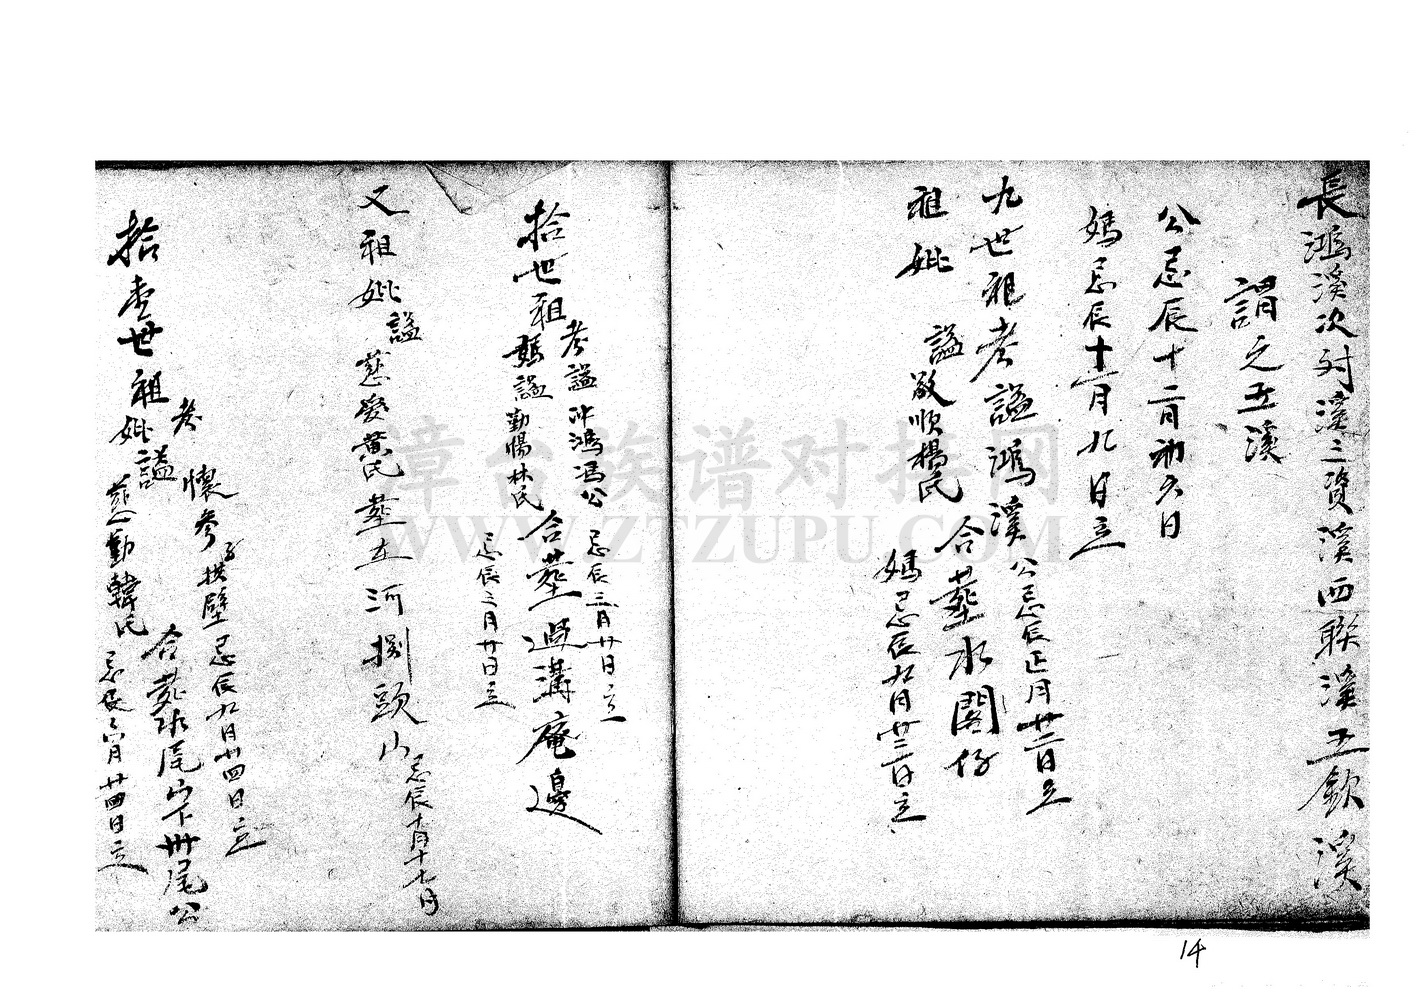 長鴻溪次对溪三資溪四聯溪五欽溪
謂之五溪
公忌辰十二月初六日
媽忌辰十一月九日立
九世祖考諡鴻溪 公忌辰正月廿二日立
祖妣 諡敬順楊氏 合葬水閣仔
媽忌辰九月廿三日立
拾世祖考諡冲鴻馮公 忌辰三月廿日立
媽諡勤惕林氏 合葬過溝庵邊
忌辰三月廿日立
又祖妣諡慈愛黃氏葬在河捌頭山 忌辰十月十七日
考懷參 忌辰九月廿四日立
拾壹世祖妣諡慈勤韓氏 合葬 尾山下卅尾公
忌辰六月廿四日立
漳台族谱对接网
WWW.ZTZUPU.COM
14